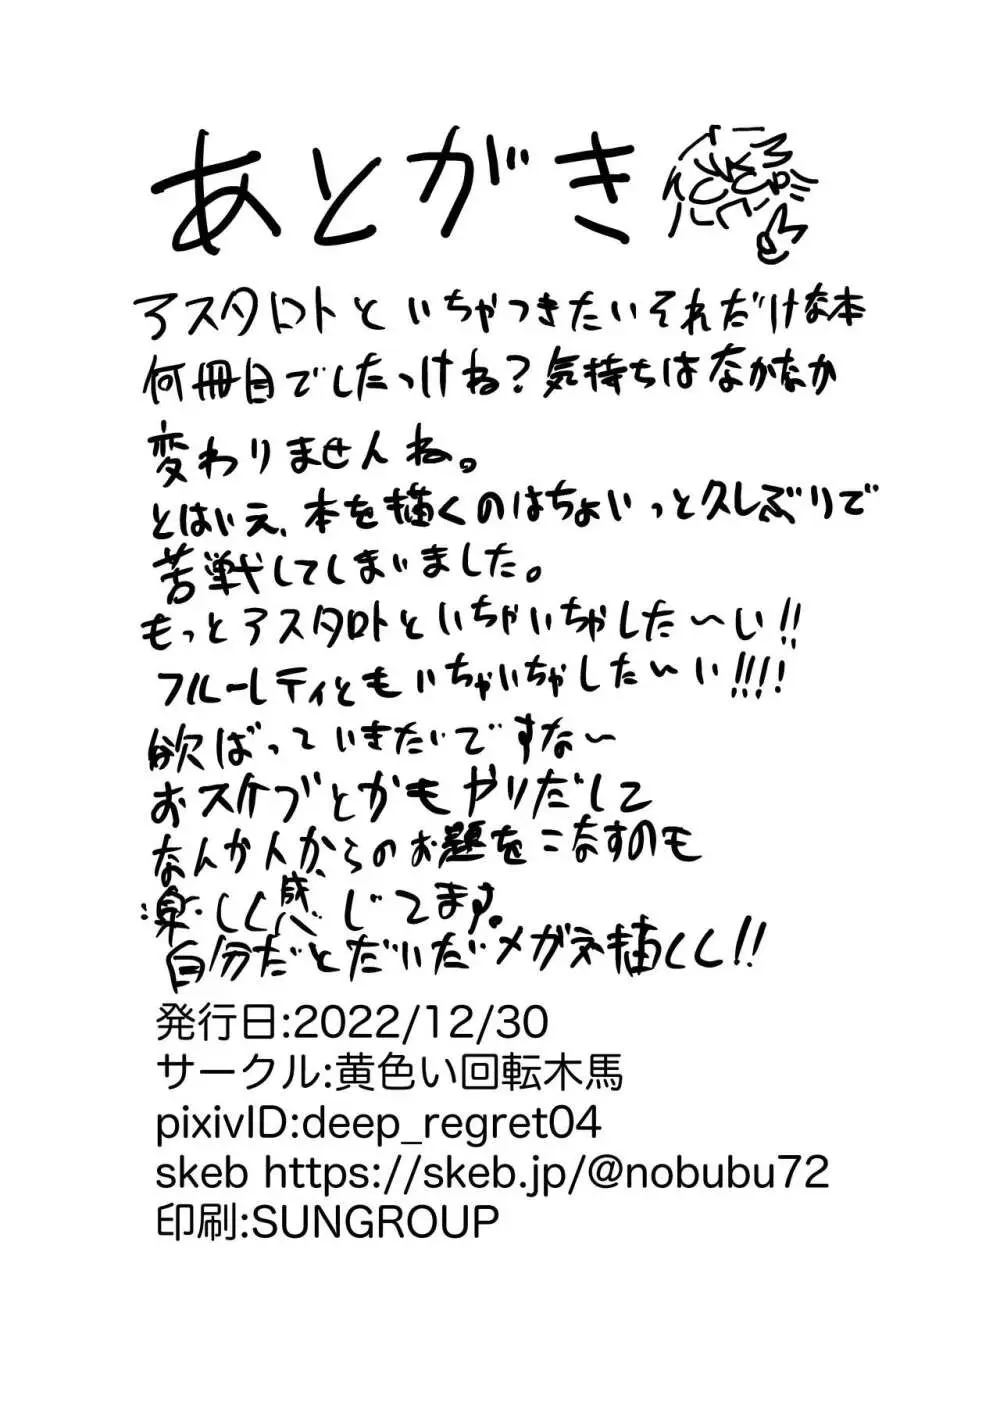 あとがき
アスタロトといちゃつきたいそれだけな本
何冊目でしたっけね?気持ちはなかなか
変わりませんね。
とはいえ、本を描くのはちょいっと久しぶりで
苦戦してしまいました。
もっとアスタロトといちゃいちゃした〜い!!
フルーレティともいちゃいちゃした〜い!!!!
欲ばっていきたいですな〜
おスケブとかもやりだして
なんか人からのお題をこなすのも
楽しく感じてます。
自分だとだいだいメガネ描くし!!
発行日:2022/12/30
サークル:黄色い回転木馬
pixivID:deep_regret04
skeb https://skeb.jp/@nobubu72
印刷:SUNGROUP